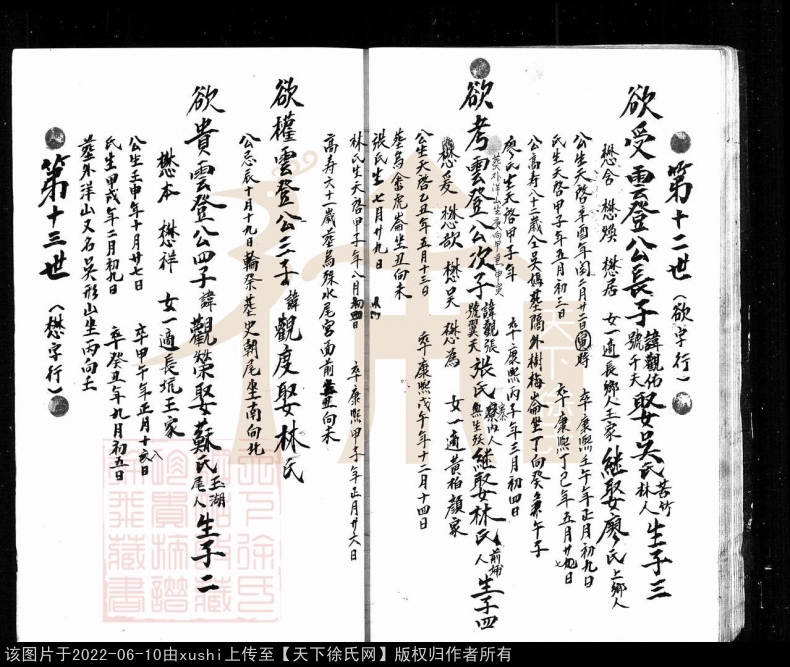 第十二世（欲字行）
欲受雲登公長子諱觀佑號千天娶吳氏苦竹林人生子三
懋舍 懋煥 懋居 女一適長鄉人王家 繼娶廖氏上鄉人
公生天啓辛酉年閏二月廿二日時 卒康熙壬午年正月初九日
氏生天啓甲子年五月初三日 卒康熙丁巳年五月廿九日
公高壽八十二歲仝吳媽墓隔外樹梅崙坐丁向癸兼午子
廖氏生天啓甲子年 卒康熙丙子年三月初四日
葬外洋山坐庚向甲
欲考雲登公次子諱觀張號翼天張氏無生改繼娶林氏前埔人生子四
懋爰 懋欽 懋吳 懋為 女一適黃柏顏家
公生天啓乙丑年五月十三日 卒康熙戊午年十二月十四日
墓烏畬虎崙坐丑向未
張氏生七月廿九日
林氏生天啓甲子年八月初四日 卒康熙甲子年正月廿六日
高壽六十一歲墓烏殊水尾宮面前丑向未
欲權雲登公三子諱觀度娶林氏
公忌辰十月十九日輪祭墓史朝尾坐南向北
欲貴雲登公四子諱觀榮娶蘇氏玉湖尾人生子二
懋本 懋祥 女一適長坑王家
公生壬申年十月廿七日 卒甲午年正月十八日
氏生甲戌年二月初九日 卒癸丑年九月初五日
墓外洋山又名吳形山坐丙向壬
第十三世（懋字行）
天下徐氏
该图片于2022-06-10由xushi上传至【天下徐氏网】版权归作者所有